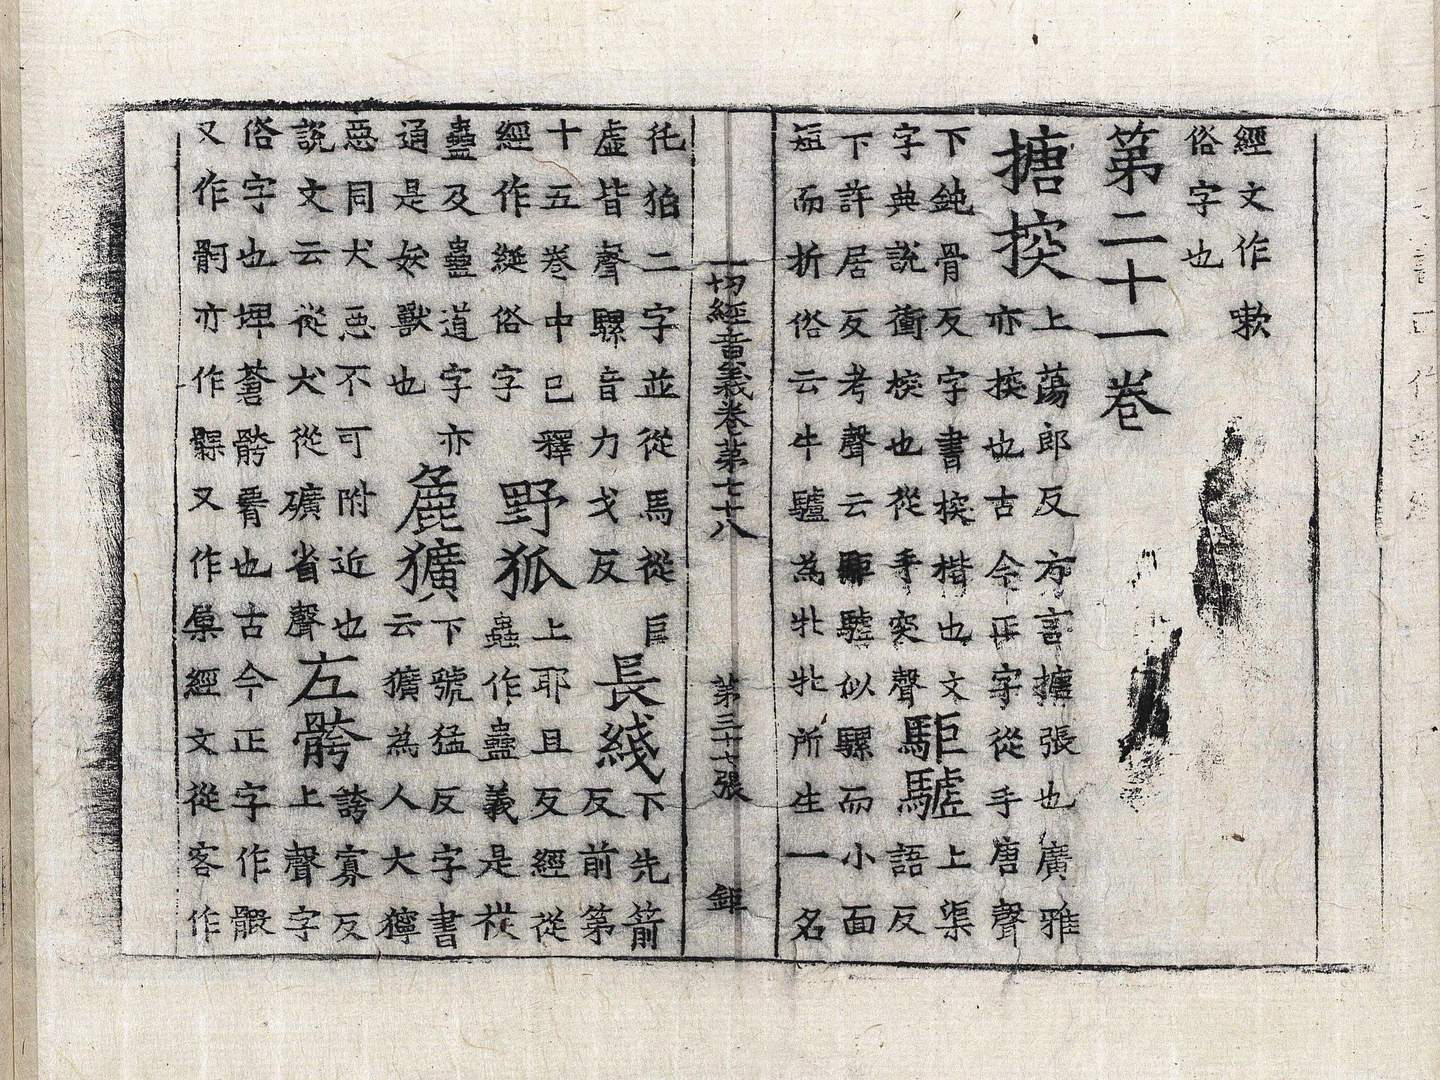 經文作嗽
俗字也
第二十一卷
搪揬
上蕩郎反方言搪張也廣雅
亦揬也古今正字從手唐聲
下鈍骨反字書揬楷也文
字典說衝揬也從手突聲
駏驉
上渠
語反
下許居反考聲云駏驉似騾而小面
短而折俗云牛驢為牝牝所生一名
一切經音義卷第七十八 第三十七張 鉅
狛二字並從馬從巨
虛皆聲騾音力戈反
長綫
下先箭
反前第
十五卷中已釋
經作綖俗字
野狐
上耶且反經從
蟲作蠱義是
蠱及蠱道字亦
通是妖獸也
麁獷
下號猛反字書
云獷為人大獰
惡同犬惡不可附近也
說文云從犬從礦省聲
左骻
誇寡反
上聲字
俗字也埤蒼骻也古今正字作
又作亦作髁又作經文從客作